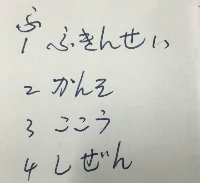 ふ
1 ふきんせい
2 かんそ
3 ここう
4 しぜん